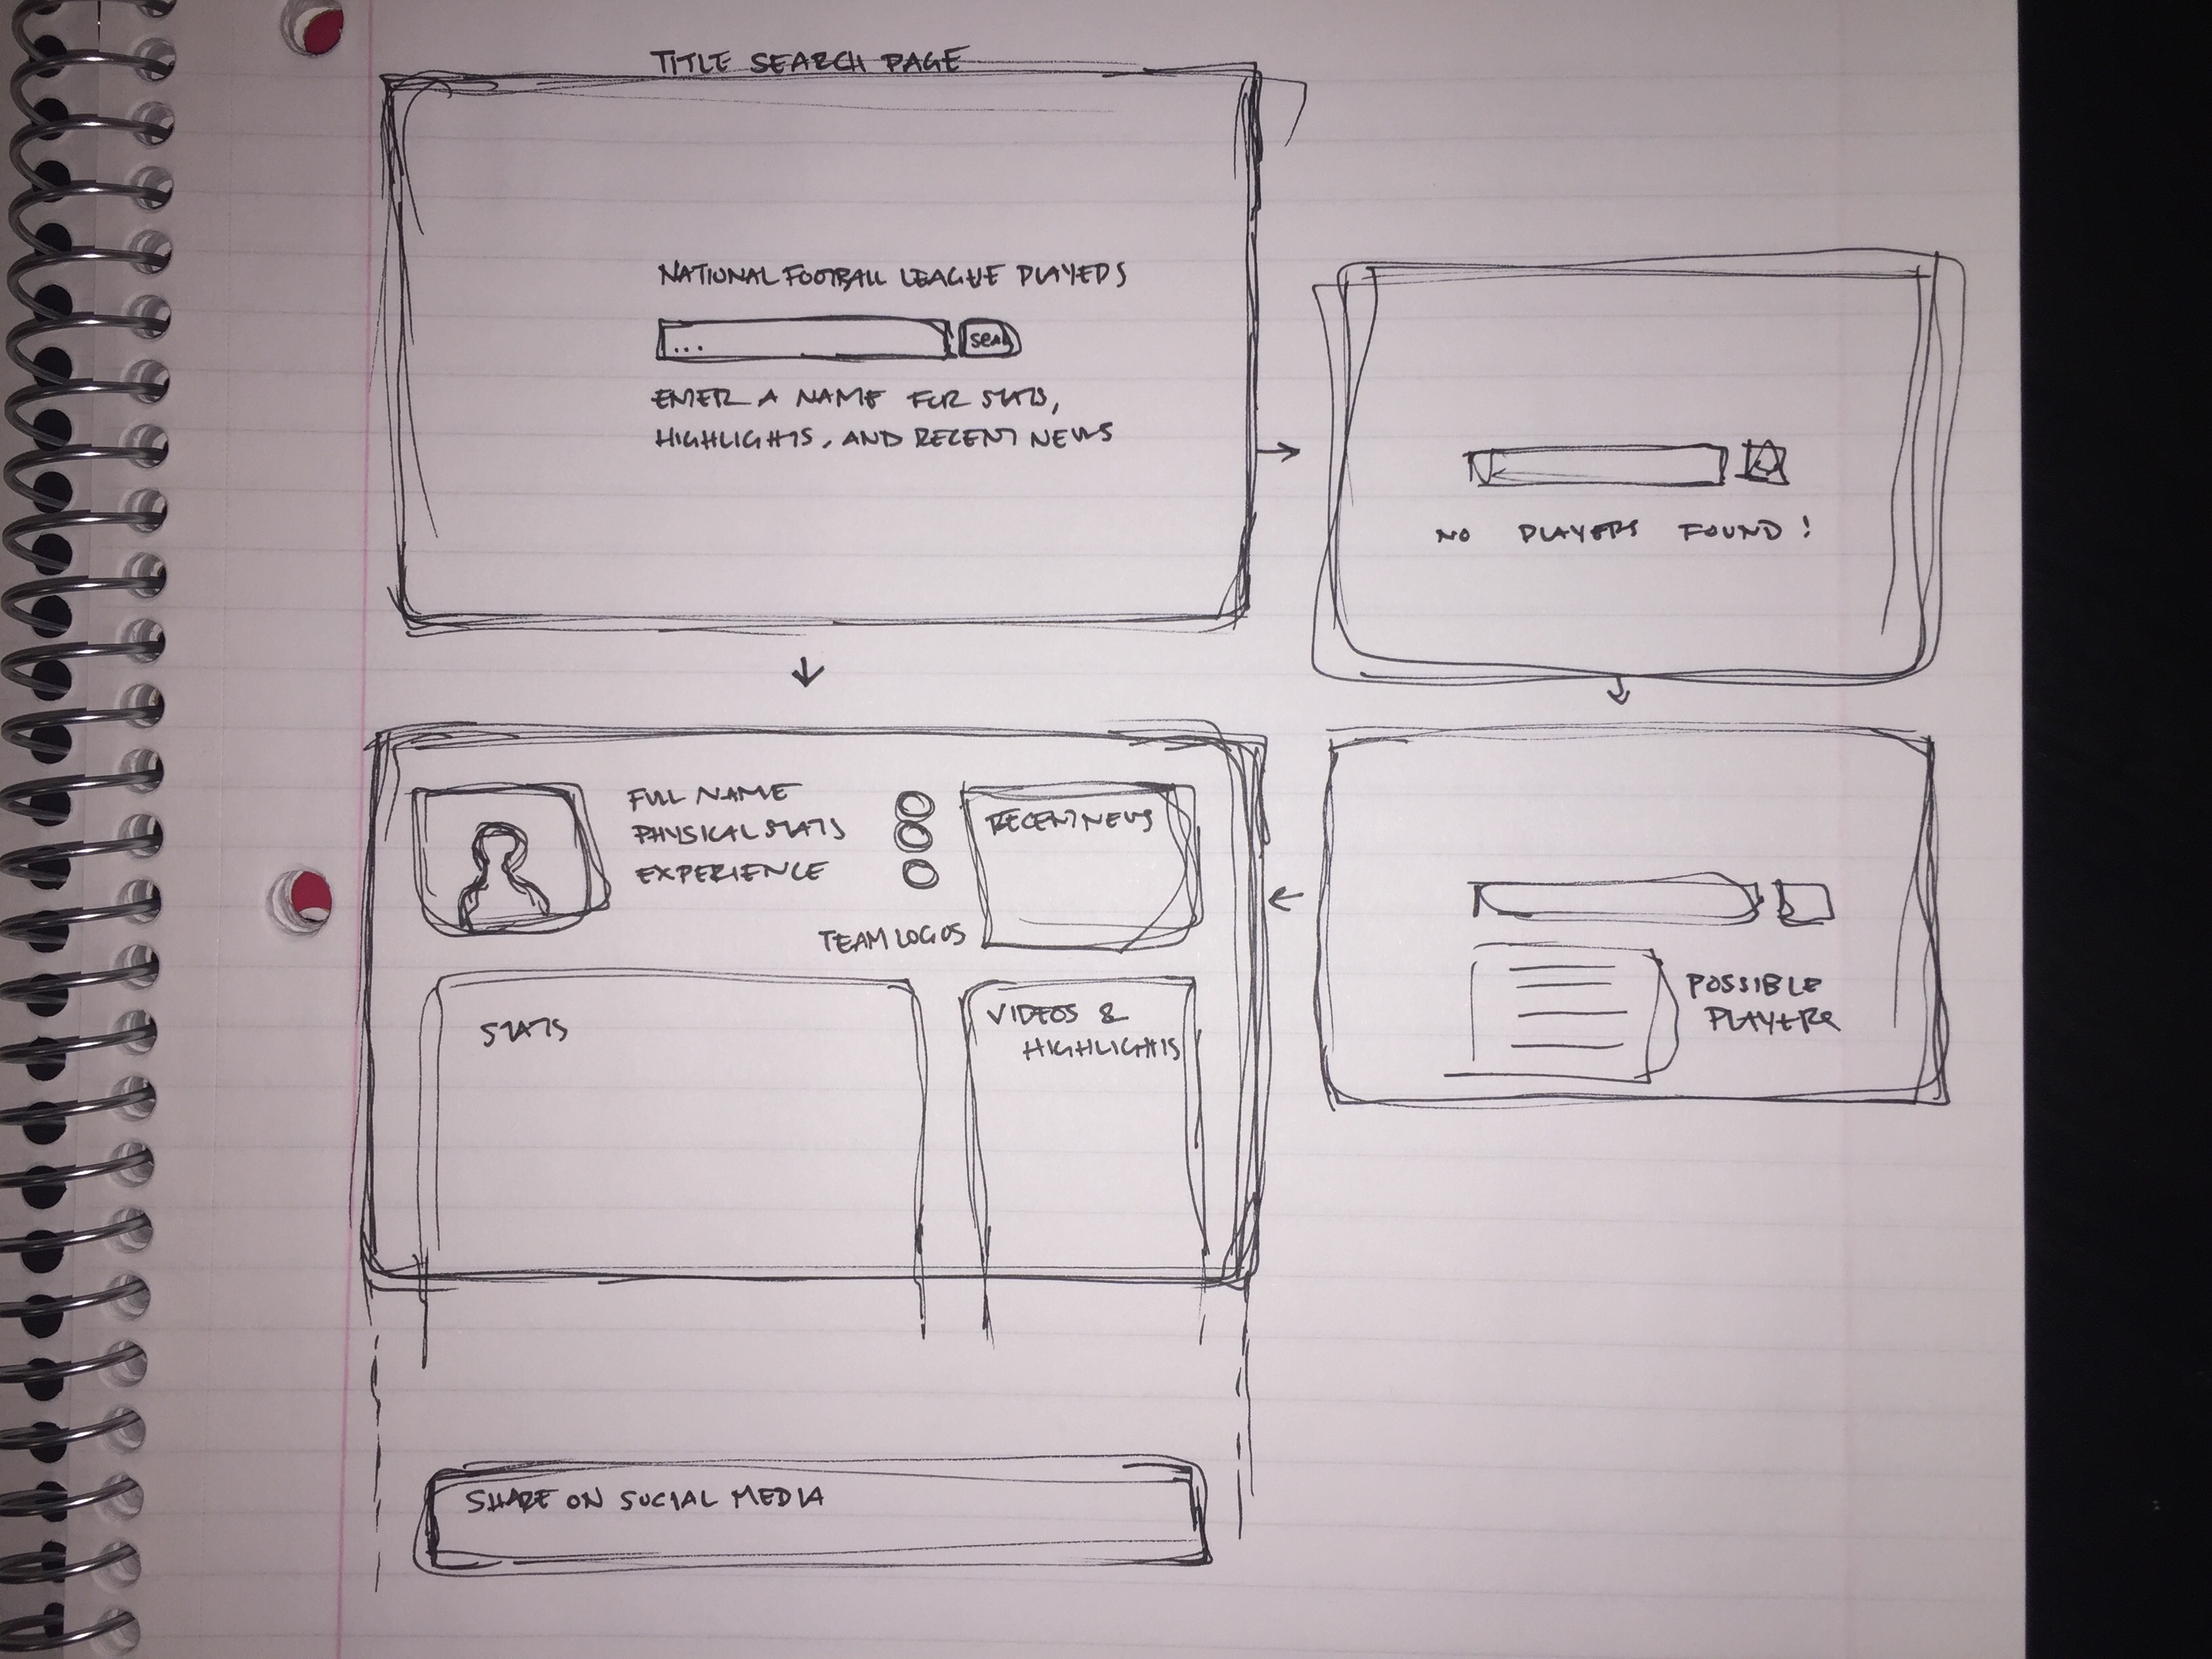 TITLE SEARCH PAGE
NATIONAL FOOTBALL LEAGUE PLAYERS
...
SEAR
ENTER A NAME FOR STATS,
HIGHLIGHTS, AND RECENT NEWS
NO PLAYERS FOUND!
FULL NAME
PHYSICAL STATS
EXPERIENCE
TEAM LOGOS
RECENT NEWS
STATS
VIDEOS &
HIGHLIGHTS
POSSIBLE
PLAYERS
SHARE ON SOCIAL MEDIA